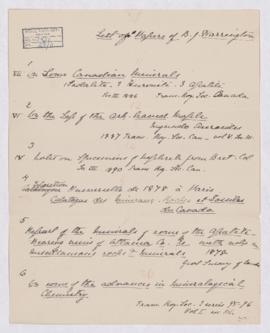 List of Papers of B. J. Harrington
VII On Some Canadian Minerals
Sodalite - 
Vol III 1886 Trans. Roy. Soc. Canada
VI On the Sap of the Ash-leaved Maple
Negundo Aceroides
1887 Trans. Roy. Soc. Can - vol 5. Sec III
Note on Specimen of from Brit. Col
Sec III 1890 Trans Roy. Soc. Can.
4 Universelle de 1878 à Paris
Catalogue des Minéraux Roches et Fossiles
du Canada
5 Report of the minerals of some of the Apatite-
bearing veins of Ottawa Co. with notes on
miscellaneous rocks & minerals 1878
Geol Survey of Canada
6 On some of the advances in Mineralogical
Chemistry
Trans Roy. Soc. 2 series 95-96
Vol I Sec III.